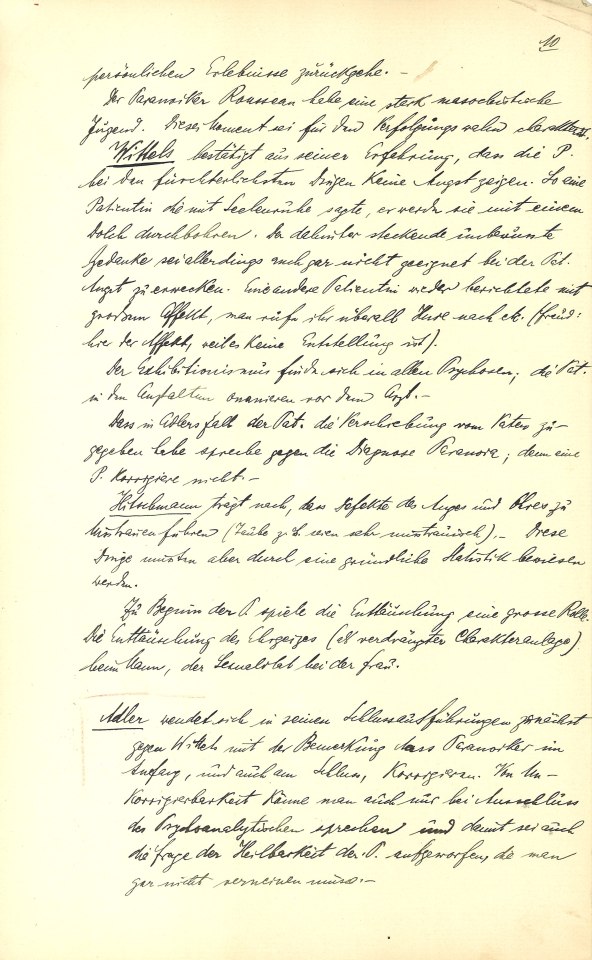 10
persönlichen Erlebnisse zurückgehe. –
Der Paranoiker Rousseau habe eine stark masochistische
Jugend. Dieses Moment sei für den Verfolgungswahn charakterist.
Wittels bestätigt aus seiner Erfahrung, dass die P.
bei den fürchterlichsten Dingen keine Angst zeigen. So eine
Patientin die mit Seelenruhe sagte, er werde sie mit einem
Dolch durchbohren. Der dahinter steckende unbewusste
Gedanke sei allerdings auch gar nicht geeignet bei der Pat.
Angst zu erwecken. Eine andere Patientin wieder berichtete mit
grossem Affekt, man rufe ihr überall Hure nach etc. (Freud:
hier der Affekt, weil es keine Entstellung ist).
Der Exhibitionismus finde sich in allen Psychosen; die Pat.
in den Anstalten onanieren vor dem Arzt. –
Dass in Adlers Fall der Pat. die Verschreibung vom Vater zu-
gegeben habe spreche gegen die Diagnose Paranoia; denn eine
P. korrigiere nicht. –
Hitschmann trägt nach, dass Defekte des Auges und Ohres zu
Misstrauen führen (Taube z.B. seien sehr misstrauisch). – Diese
Dinge müssten aber durch eine gründliche Statistik bewiesen
werden.
Zu Beginn der P. spiele die Enttäuschung eine grosse Rolle.
Die Enttäuschung des Ehrgeizes (als verdrängter Charakteranlage)
beim Mann, der Sexualität bei der Frau.
Adler wendet sich in seinen Schlussausführungen zunächst
gegen Wittels mit der Bemerkung dass Paranoiker im
Anfang, und auch am Schluss, korrigieren. Von Un-
korrigierbarkeit könne man auch nur bei Ausschluss
des Psychoanalytischen sprechen und damit sei auch
die Frage der Heilbarkeit der P. aufgeworfen, die man
gar nicht verneinen müsse. –